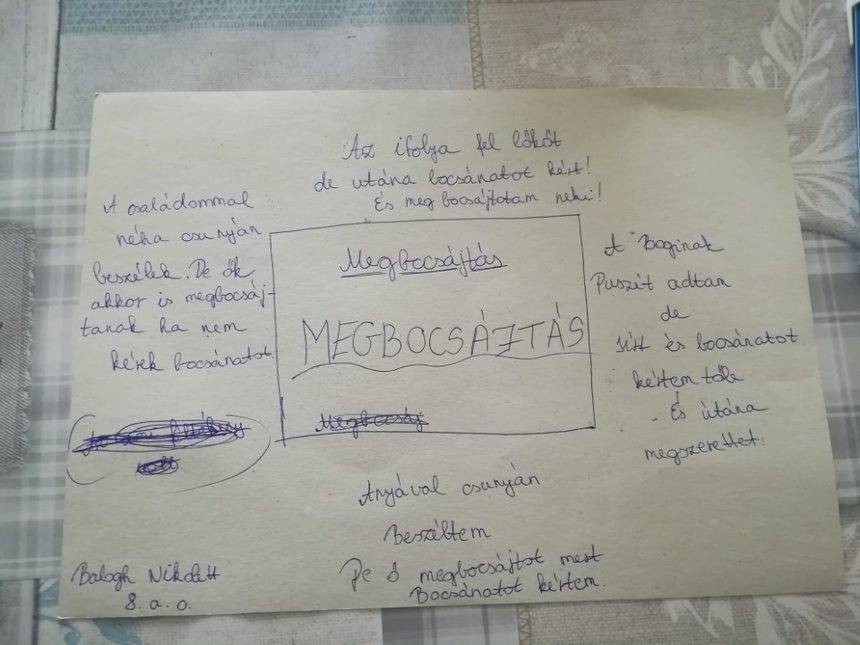 Az ifolya fel lököt
de utána bocsánatot kért!
És meg bocsájtotam neki!
A családommal
néha csunyán
beszélek. De ők
akkor is megbocsáj-
tanak ha nem
kérek bocsánatot
Megbocsájtás
MEGBOCSÁJTÁS
Megbocsáj
A Boginak
Puszit adtan
de
sírt és bocsánatot
kértem tőle
És útána
megszerettet.
Anyával csunyán
Beszéltem
De ő megbocsájtot mert
Bocsánatot kértem.
Balogh Nikolett
8. a. o.